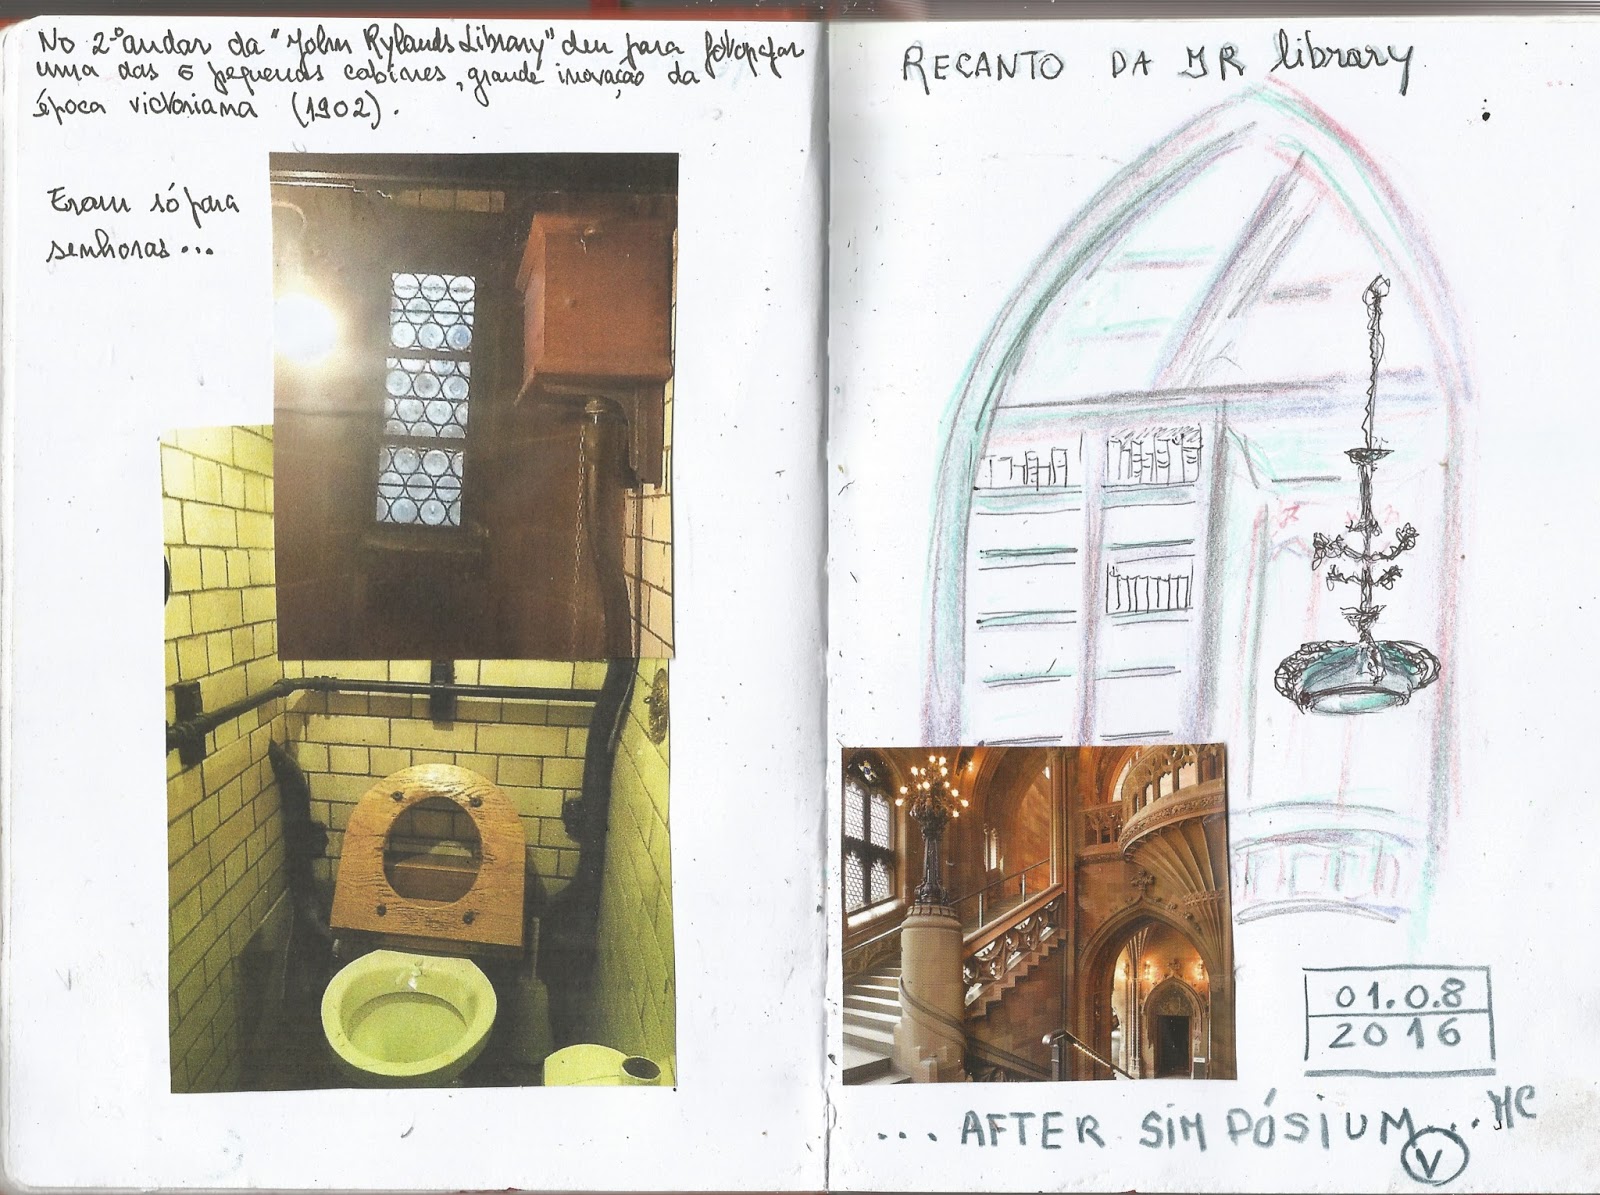 No 2º andar da "John Rylands Library" deu para fotografar
uma das 6 pequenas cabines, grande inovação da
época victoriana (1902).
Eram só para
senhoras...
RECANTO DA JR library
01.0.8
2016
... AFTER SIMPÓSIUM... MC
V